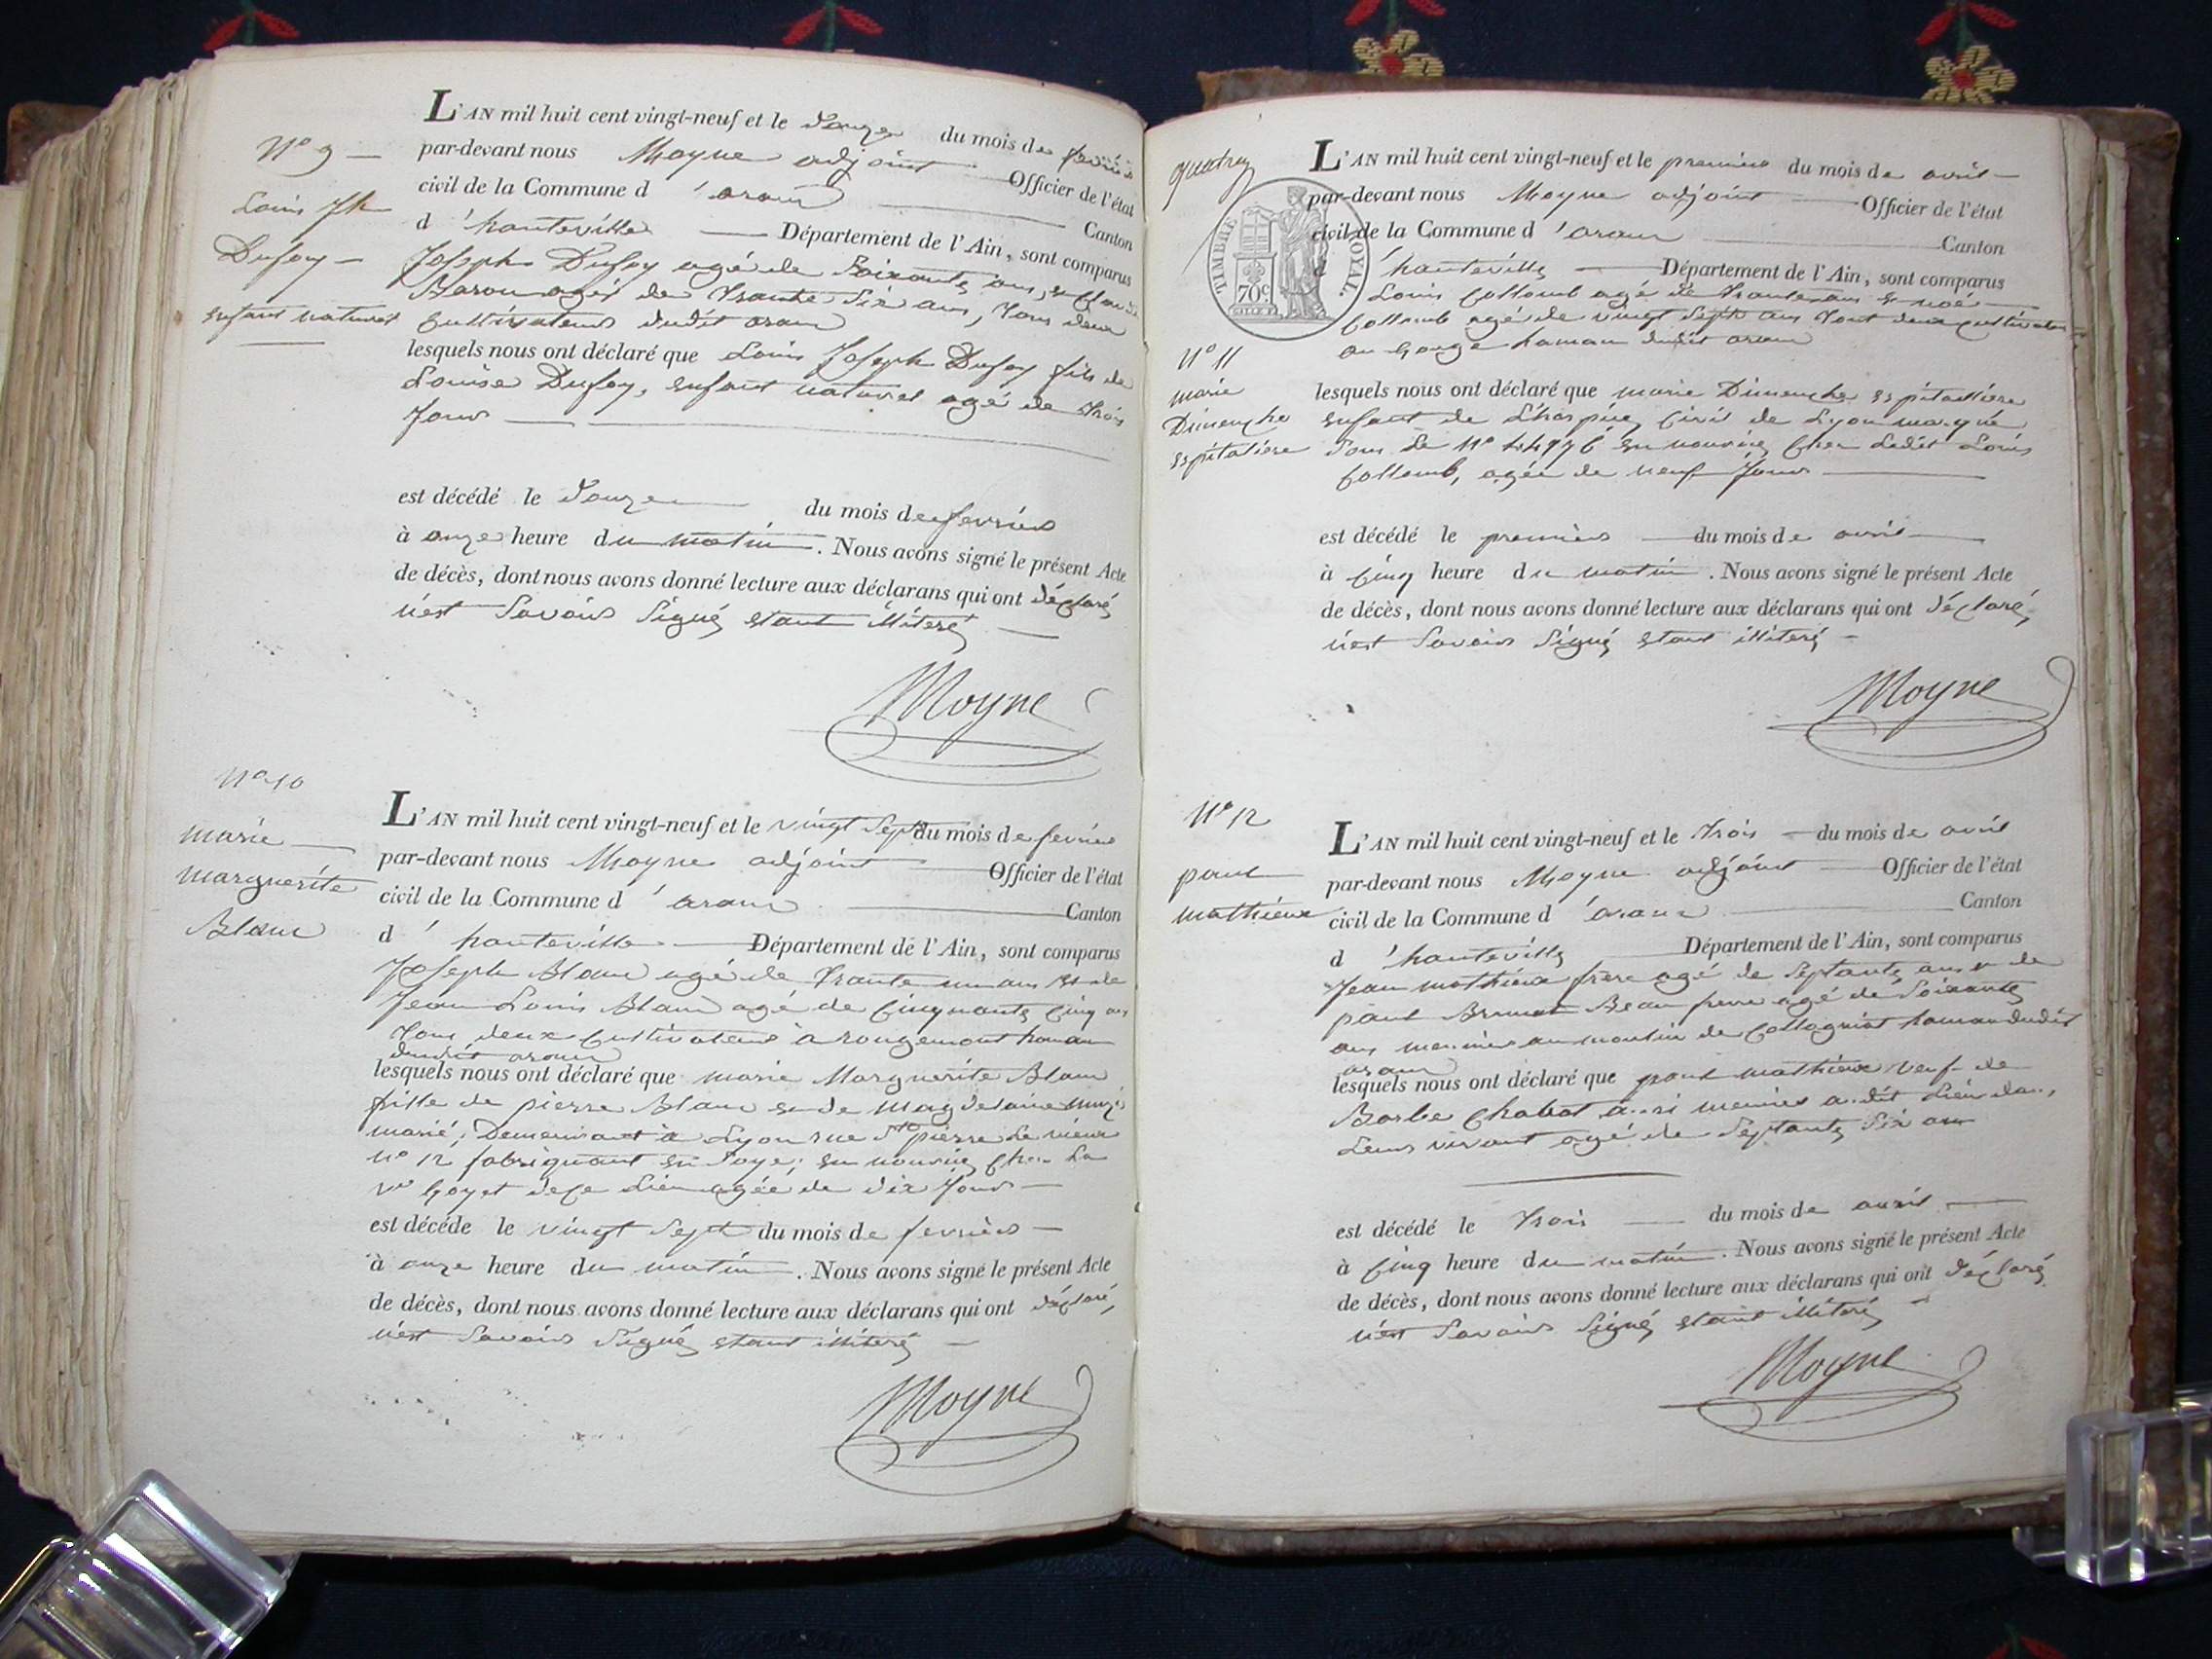 N° 9 —
Louis Jh
Dufay —
enfant naturel
L'AN mil huit cent vingt-neuf et le Douze du mois de fevrier
par-devant nous Moyne adjoint Officier de l'état
civil de la Commune d'aranc Canton
d'hauteville — Département de l'Ain, sont comparus
Joseph Dufay agé de Soixante ans, et Claude
agé de Trante Six ans, Tous deux
Cultivateurs dudit aranc
lesquels nous ont déclaré que Louis Joseph Dufay fils de
Louise Dufay, enfant naturel agé de Trois
Jours
est décédé le Douze du mois de fevrier
à onze heure du matin. Nous avons signé le présent Acte
de décès, dont nous avons donné lecture aux déclarans qui ont déclaré
n'est Savoir Signé etant illiteré —
Moyne
N° 10
marie —
marguerite
Blanc
L'AN mil huit cent vingt-neuf et le vingt Sept du mois de fevrier
par-devant nous Moyne adjoint Officier de l'état
civil de la Commune d'aranc Canton
d'hauteville — Département de l'Ain, sont comparus
Joseph Blanc agé de Trante un ans et de
Jean Louis Blanc agé de Cinquante Cinq ans
Tous deux Cultivateurs à rougemont hamau
dudit aranc
lesquels nous ont déclaré que marie Marguerite Blanc
fille de pierre Blanc et de Magdelaine
marié, Demeurant à Lyon rue St pierre Le vieux
N° 12 fabriquant en Soye; en nourrice chez La
Ve Goyet de ce Lieu agée de dix Jours —
est décéde le vingt Sept du mois de fevrier —
à onze heure du matin. Nous avons signé le présent Acte
de décès, dont nous avons donné lecture aux déclarans qui ont déclaré,
n'est Savoir Signé etant illiteré —
Moyne
TIMBRE ROYAL.
70c
N° 11
marie
Dimenche
espitaliere
L'AN mil huit cent vingt-neuf et le premier du mois de avril —
par-devant nous Moyne adjoint Officier de l'état
civil de la Commune d'aranc Canton
d'hauteville — Département de l'Ain, sont comparus
Louis Collomb agé de Trante ans et noé
Collomb agé de vingt Sept ans Tout deux cultivateurs
au Gorge hamau dudit aranc
lesquels nous ont déclaré que marie Dimenche espitalliere
enfant de L'hospice Civil de Lyon marqué
Sous Le N° 44976 en nourrice Chez Ledit Louis
Collomb, agée de neuf Jours
est décédé le premier — du mois de avril —
à Cinq heure du matin. Nous avons signé le présent Acte
de décès, dont nous avons donné lecture aux déclarans qui ont déclaré,
n'est Savoir Signé etant illiteré —
Moyne
N° 12
paul
mathieux
L'AN mil huit cent vingt-neuf et le Trois — du mois de avril
par-devant nous Moyne adjoint Officier de l'état
civil de la Commune d'aranc Canton
d'hauteville Département de l'Ain, sont comparus
Jean mathieux frère agé de Septante ans et de
paul Brunet Beau frere agé de Soixante
ans meunier au moulin de Collognat hamau dudit
aranc
lesquels nous ont déclaré que paul mathieux veuf de
Barbe Chabot aussi meunier audit Lieu dans,
Leurs vivant agé de Septante Six ans
est décédé le Trois — du mois de avril —
à Cinq heure du matin. Nous avons signé le présent Acte
de décès, dont nous avons donné lecture aux déclarans qui ont déclaré,
n'est Savoir Signé etant illiteré —
Moyne